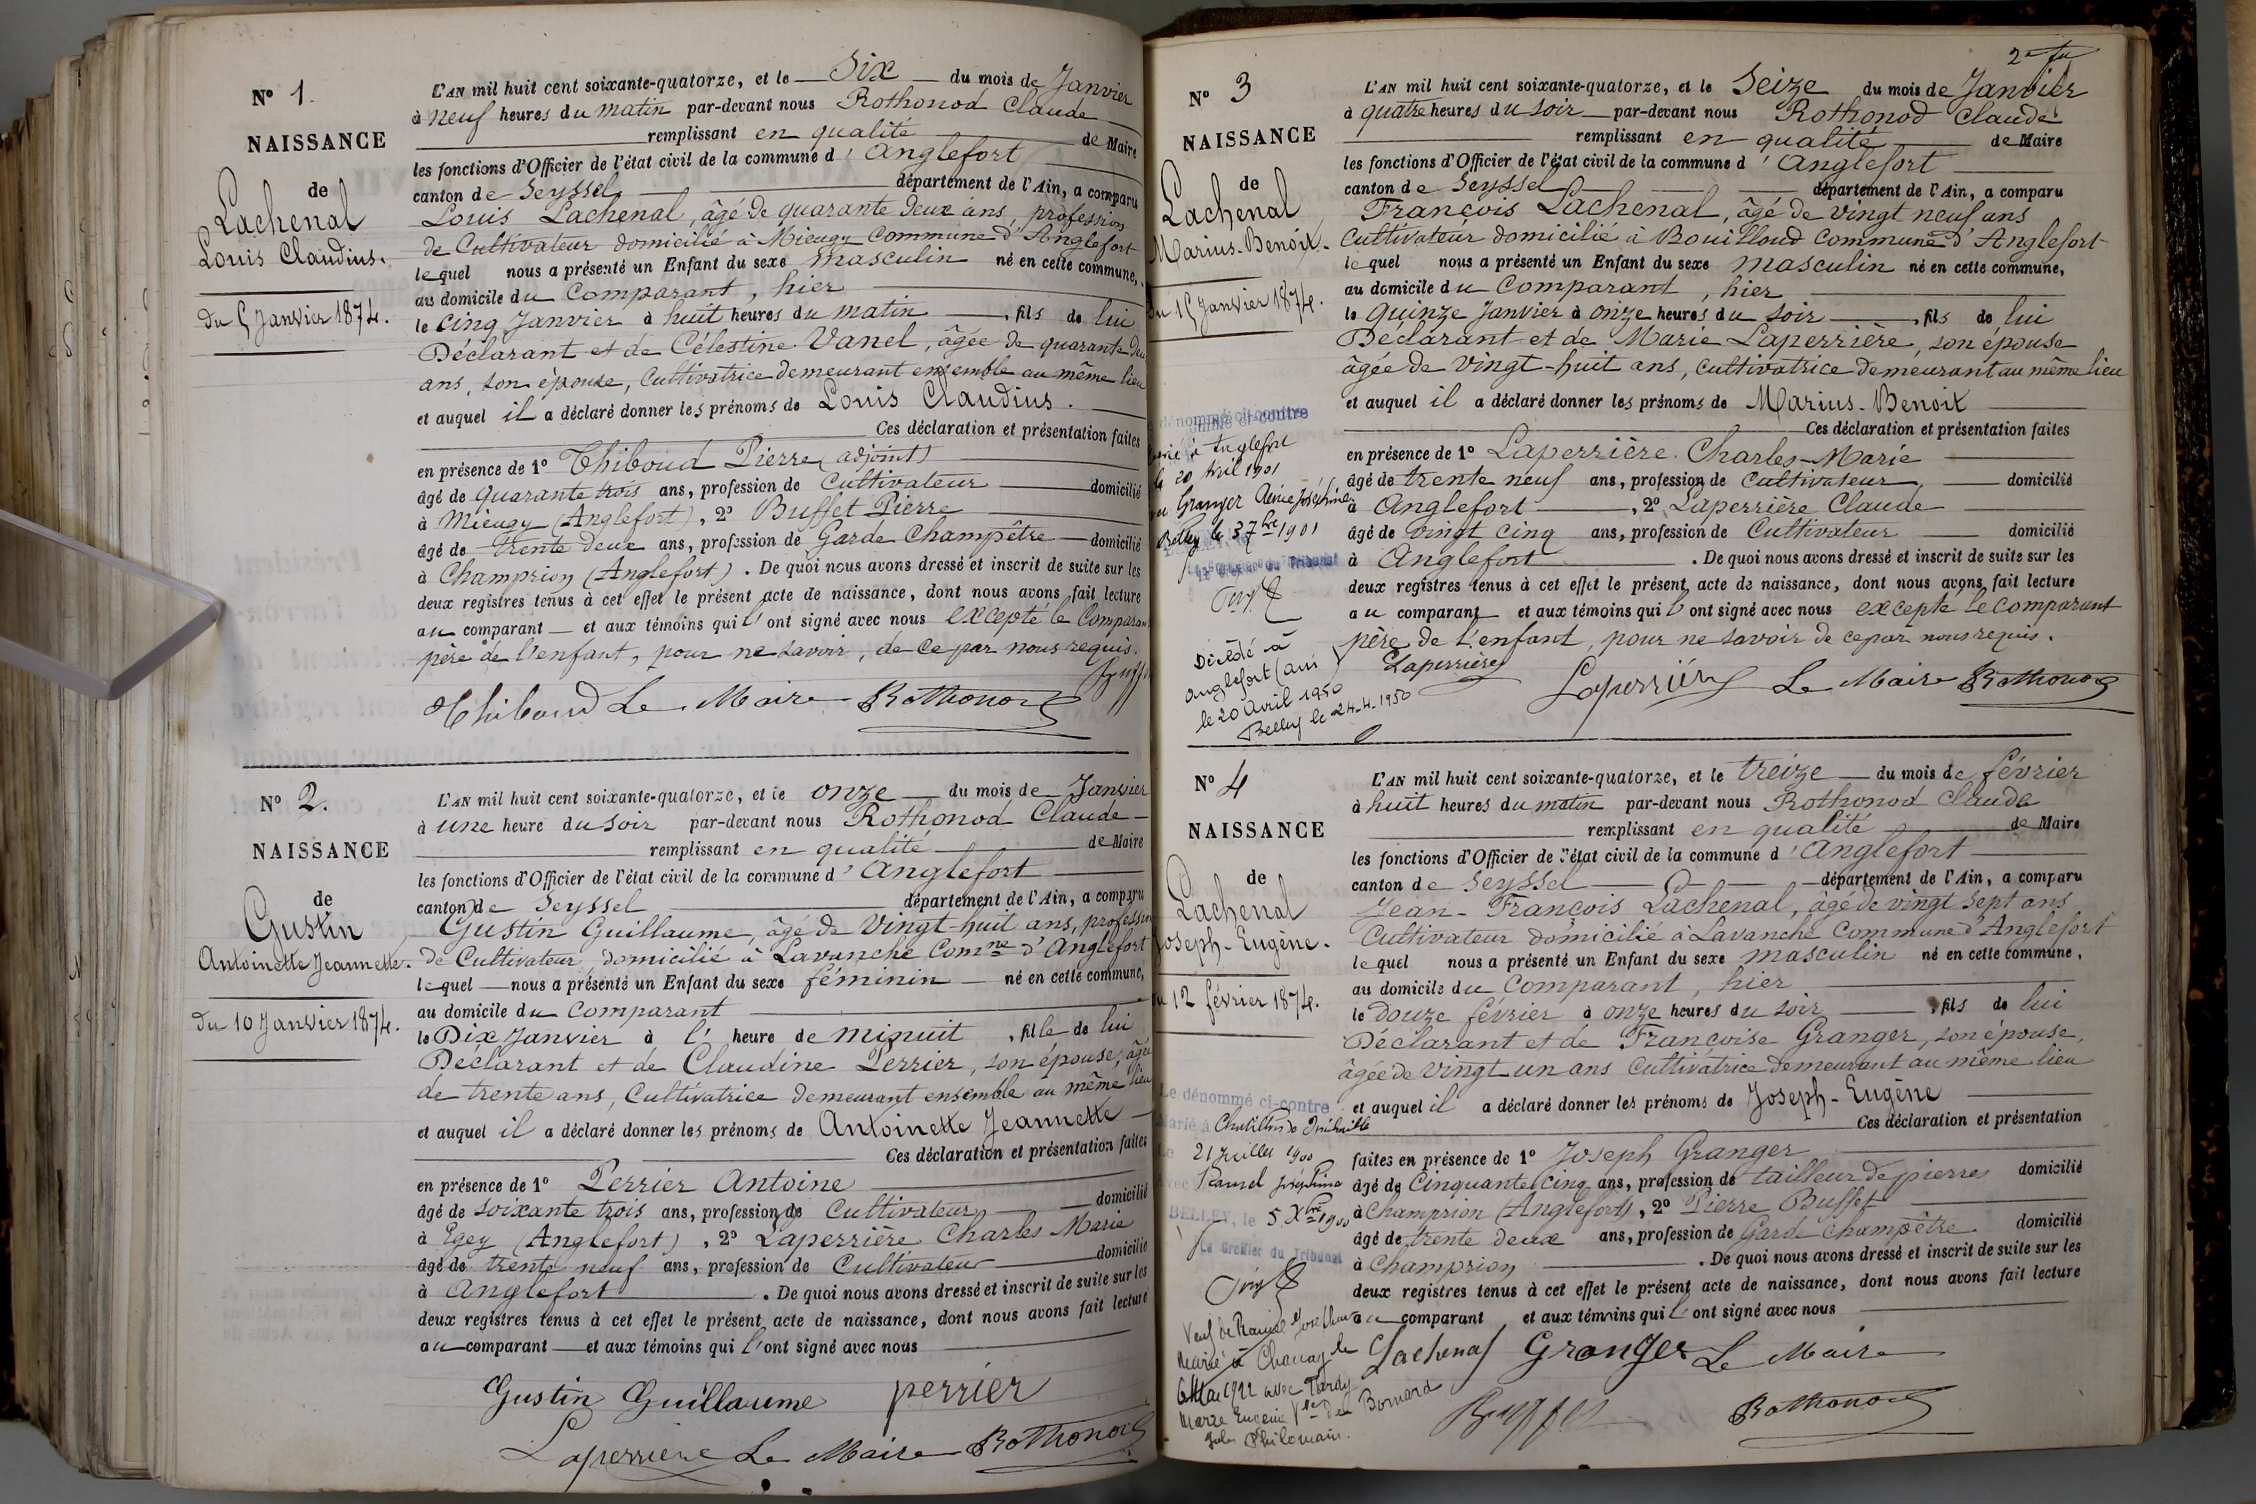 N° 1.
NAISSANCE
de
Lachenal
Louis Claudius.
du 5 Janvier 1874.
L'AN mil huit cent soixante-quatorze, et le Six du mois de Janvier
à neuf heures du matin par-devant nous Rothonod Claude
remplissant en qualité de Maire
les fonctions d'Officier de l'état civil de la commune d'Anglefort
canton de Seyssel département de l'Ain, a comparu
Louis Lachenal, âgé de quarante deux ans, profession
de Cultivateur domicilié à Mieugy Commune d'Anglefort
lequel nous a présenté un Enfant du sexe masculin né en cette commune,
au domicile du Comparant, hier
le cinq Janvier à huit heures du matin, fils de lui
Déclarant et de Célestine Vanel, âgée de quarante deux
ans, son épouse, Cultivatrice demeurant ensemble au même lieu
et auquel il a déclaré donner les prénoms de Louis Claudius.
Ces déclaration et présentation faites
en présence de 1° Thiboud Pierre (adjoint)
âgé de quarante trois ans, profession de Cultivateur domicilié
à Mieugy (Anglefort), 2° Buffet Pierre
âgé de trente deux ans, profession de Garde Champêtre domicilié
à Champrion (Anglefort). De quoi nous avons dressé et inscrit de suite sur les
deux registres tenus à cet effet le présent acte de naissance, dont nous avons fait lecture
au comparant et aux témoins qui l'ont signé avec nous excepté le Comparant
père de l'enfant, pour ne savoir, de ce par nous requis.
Thiboud Le Maire Rothonod
N° 2.
NAISSANCE
de
Gustin
Antoinette Jeannette.
du 10 Janvier 1874.
L'AN mil huit cent soixante-quatorze, et le onze du mois de Janvier
à une heure du soir par-devant nous Rothonod Claude
remplissant en qualité de Maire
les fonctions d'Officier de l'état civil de la commune d'Anglefort
canton de Seyssel département de l'Ain, a comparu
Gustin Guillaume, âgé de Vingt-huit ans, profession
de Cultivateur domicilié à Lavanche Comne d'Anglefort
lequel nous a présenté un Enfant du sexe féminin né en cette commune,
au domicile du Comparant
le Dix Janvier à l'heure de minuit, fille de lui
Déclarant et de Claudine Perrier, son épouse, âgée
de trente ans, Cultivatrice demeurant ensemble au même lieu
et auquel il a déclaré donner les prénoms de Antoinette Jeannette
Ces déclaration et présentation faites
en présence de 1° Perrier Antoine
âgé de soixante trois ans, profession de Cultivateur domicilié
à Egey (Anglefort), 2° Laperrière Charles Marie
âgé de trente neuf ans, profession de Cultivateur domicilié
à Anglefort. De quoi nous avons dressé et inscrit de suite sur les
deux registres tenus à cet effet le présent acte de naissance, dont nous avons fait lecture
au comparant et aux témoins qui l'ont signé avec nous
Gustin Guillaume perrier
Laperrière Le Maire Rothonod
N° 3
NAISSANCE
de
Lachenal
Marius-Benoit.
du 15 Janvier 1874.
dénommé ci-contre
Marié à Anglefort
le 20 Avril 1901
Granger Josephine
Belley le 3 7bre 1901
Le Greffier du Tribunal
Décédé à
Anglefort (Ain)
le 20 Avril 1950
Belley le 24-4-1950
L'AN mil huit cent soixante-quatorze, et le Seize du mois de Janvier
à quatre heures du soir par-devant nous Rothonod Claude
remplissant en qualité de Maire
les fonctions d'Officier de l'état civil de la commune d'Anglefort
canton de Seyssel département de l'Ain, a comparu
François Lachenal, âgé de vingt neuf ans
Cultivateur domicilié à Bouilloud Commune d'Anglefort
lequel nous a présenté un Enfant du sexe masculin né en cette commune,
au domicile du Comparant, hier
le Quinze Janvier à onze heures du soir, fils de lui
Déclarant et de Marie Laperrière, son épouse
âgée de vingt-huit ans, cultivatrice demeurant au même lieu
et auquel il a déclaré donner les prénoms de Marius-Benoit
Ces déclaration et présentation faites
en présence de 1° Laperrière Charles-Marie
âgé de trente neuf ans, profession de Cultivateur domicilié
à Anglefort, 2° Laperrière Claude
âgé de vingt cinq ans, profession de Cultivateur domicilié
à Anglefort. De quoi nous avons dressé et inscrit de suite sur les
deux registres tenus à cet effet le présent acte de naissance, dont nous avons fait lecture
au comparant et aux témoins qui l'ont signé avec nous excepté le Comparant
père de l'enfant, pour ne savoir de ce par nous requis.
Laperrière Laperrière Le Maire Rothonod
N° 4
NAISSANCE
de
Lachenal
Joseph-Eugène.
du 12 février 1874.
Le dénommé ci-contre
Marié à
Le 21 Juillet 1900
avec Ramel Joséphine
BELLEY, le 5 Xbre 1900
Le Greffier du Tribunal
Veuf de Ramel
Marié à Chanay le
6 Mai 1922 avec Tardy
Marie Eugénie Vve de Bornard
Jules Philomain.
L'AN mil huit cent soixante-quatorze, et le treize du mois de février
à huit heures du matin par-devant nous Rothonod Claude
remplissant en qualité de Maire
les fonctions d'Officier de l'état civil de la commune d'Anglefort
canton de Seyssel département de l'Ain, a comparu
Jean-François Lachenal, âgé de vingt sept ans
Cultivateur domicilié à Lavanche Commune d'Anglefort
lequel nous a présenté un Enfant du sexe masculin né en cette commune,
au domicile du Comparant, hier
le douze février à onze heures du soir, fils de lui
Déclarant et de Françoise Granger, son épouse,
âgée de vingt un ans Cultivatrice demeurant au même lieu
et auquel il a déclaré donner les prénoms de Joseph-Eugène
Ces déclaration et présentation
faites en présence de 1° Joseph Granger
âgé de Cinquante cinq ans, profession de tailleur de pierres domicilié
à Champrion (Anglefort), 2° Pierre Buffet
âgé de trente deux ans, profession de Garde Champêtre domicilié
à Champrion. De quoi nous avons dressé et inscrit de suite sur les
deux registres tenus à cet effet le présent acte de naissance, dont nous avons fait lecture
au comparant et aux témoins qui l'ont signé avec nous
Lachenal Granger Le Maire
Buffet Rothonod